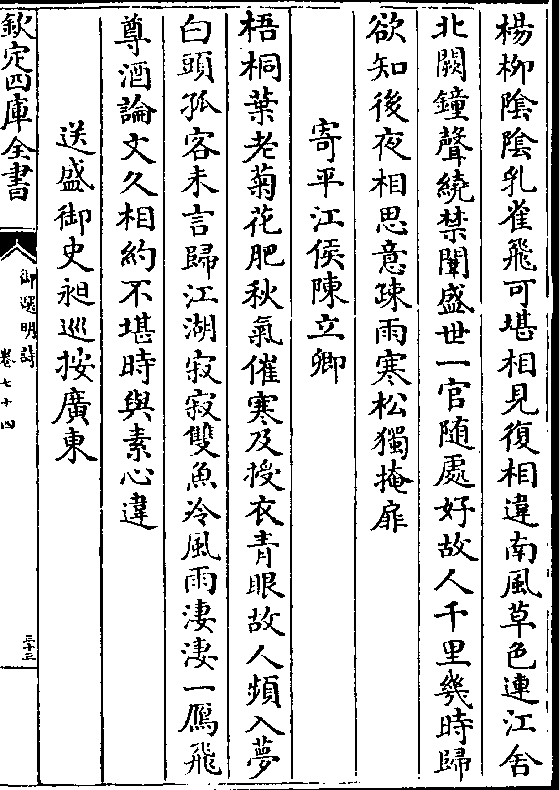 楊柳陰陰乳雀飛可堪相見復相違南風草色連江舍
北闕鐘聲繞禁闈盛世一官随處好故人千里幾時歸
欲知後夜相思意疎雨寒松獨掩扉
寄平江侯陳立卿
梧桐葉老菊花肥秋氣催寒及授衣青眼故人頻入夢
白頭孤客未言歸江湖寂寂雙魚冷風雨淒淒一鴈飛
尊酒論文久相約不堪時與素心違
送盛御史昶巡按廣東
欽定四庫全書
御選明詩
卷七十四
三十三